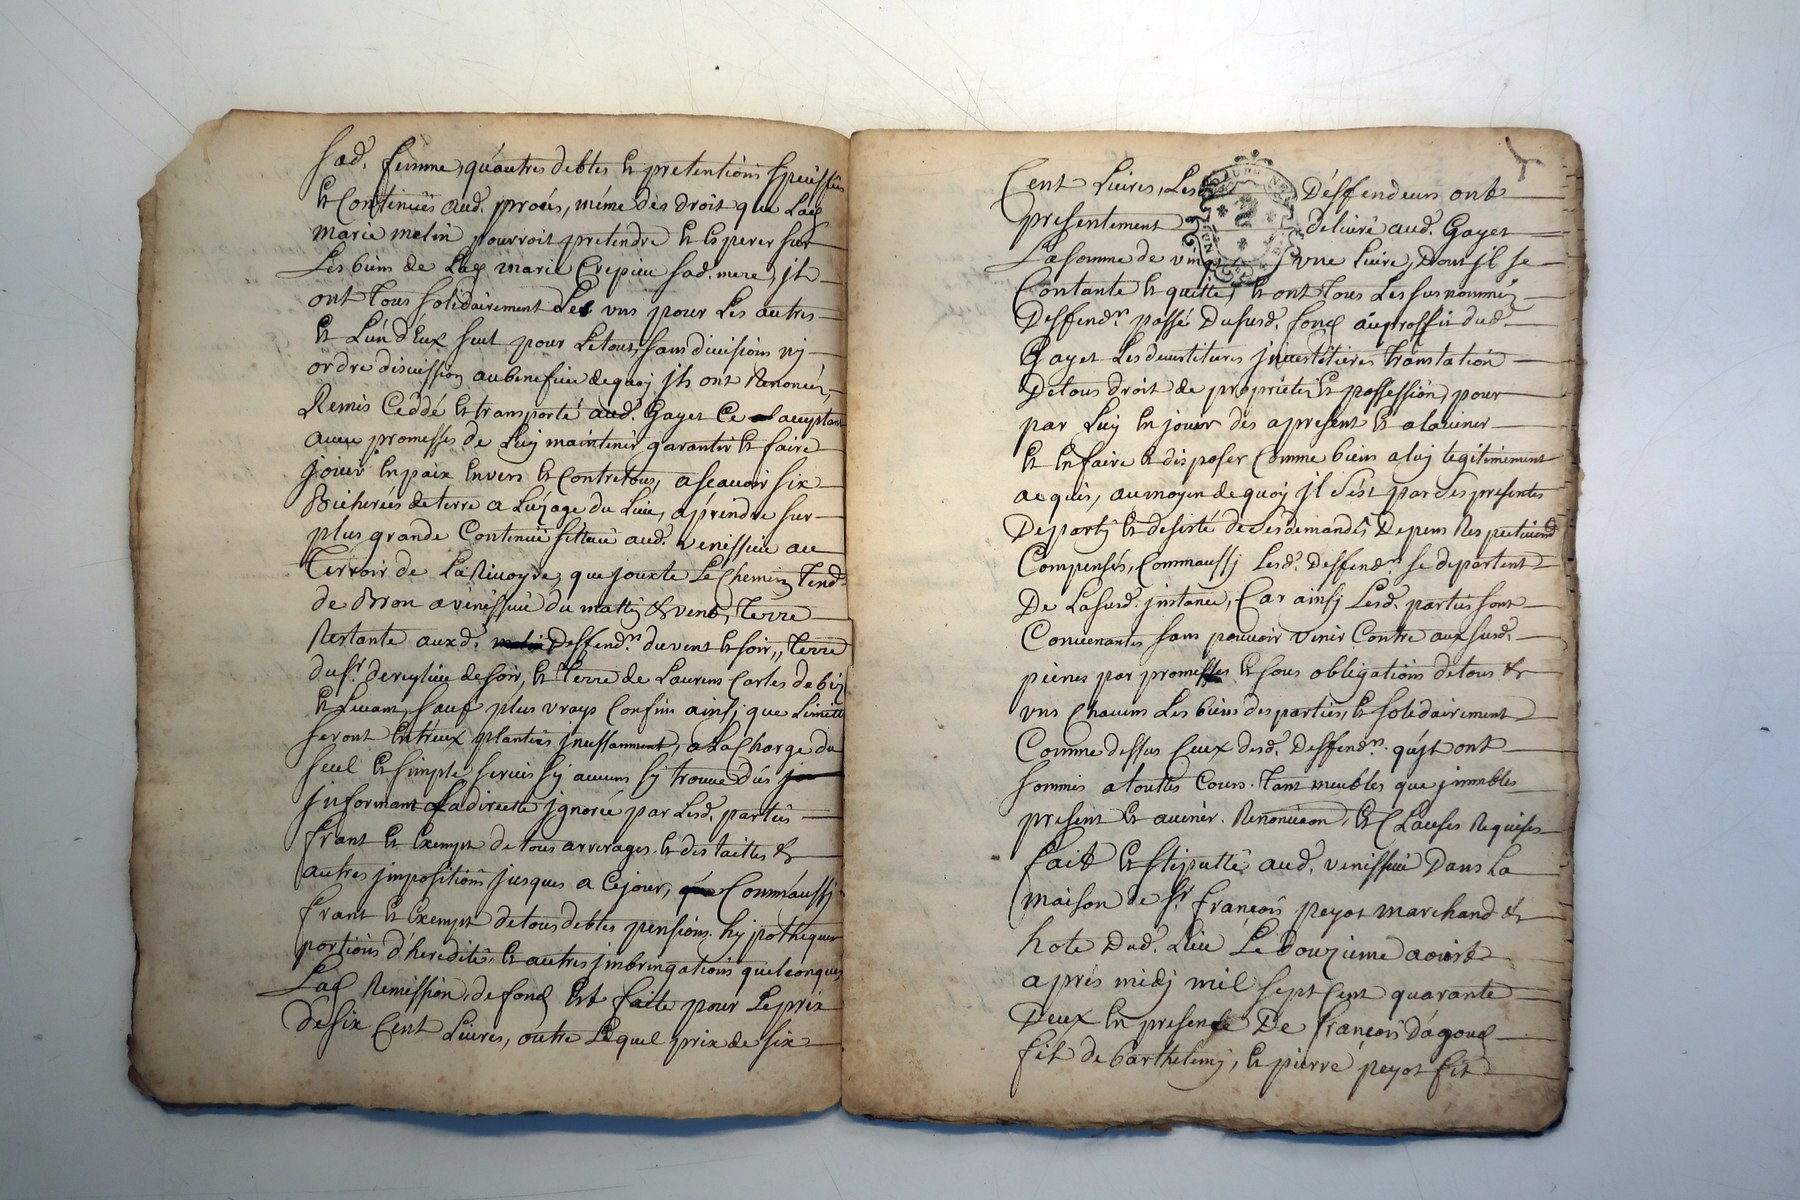 sad. femme, qu'autres debtes et pretentions speciffiées
et Contenües aud. procés, méme des droit que Lad.
marie melin pourroit pretendre et Esperer sur
Les biens de Lad. marie Crepieu sad. mere, jls
ont Tous solidairement Les vns pour Les autres
et L'un d'Eux seul pour Le tout, sans division nj
ordre discussion au benefice de quoj jls ont Renoncés,
Remis Ceddé et transporté aud. Gayet Ce acceptant
auec promesses de Luj maintenir garantir et faire
joüir En paix Envers et Contre tous, ascauoir six
Bicherées de terre a Lusage du Lieu, a prendre sur
plus grande Contenüe sittuée aud. venissieu au
Terroir de La Riuoyre, que jouxte Le Chemin Tend.
de Bron a vénissieu du matin & vent, Terre
Restante auxd. Deffend.rs du vent et soir, Terre
du sr. de soir, et Terre de Laurens Carles de bize
et Leuant, sauf plus vrays Confins ainsj que Limittes
seront Entreux plantées jncessamment, a La Charge du
seul et simple seruis sj aucuns sj trouue düs
jnformant La directe jgnorée par Lesd. parties
franc et Exempt de tous arrerages et des tailles &
autres jmpositions jusques a Ce jour, Comm'aussj
franc et Exempt de tous debtes pensions hypotheques
portions d'heredité, et autres jmbringations quelconques
Lad. Remission de fond Est faitte pour Le prix
de six Cent Liures, outre Lequel prix de six
Cent Liures, Lesd. Déffendeurs ont
presentement deliuré aud. Gayet
La somme de vingt vne liure, Dont jl se
Contante et quitte, et ont Tous Les susnommés
Deffend.rs passé Du susd. fond au proffit dud.
Gayet Les deuestitures jnuestitures Translation
De tous droit de propriété et possession, pour
par Luj En joüir dés a present et a lauenir
et En faire et disposer Comme biens a luj legitimement
acquis, au moyen de quoj jl s'est par Ses presentes
Departj et desisté de Ses demandes Depens Respectiuemt.
Compensés, Comm'aussj Lesd. Deffend.rs se departent
De La susd. jnstance, Car ainsj Lesd. parties sont
Conuenantes sans pouuoir venir Contre aux susd.
peines par promesses et sous obligations de tous &
vns Chacuns Les biens des parties, et solidairement
Comme dessus Ceux desd. Deffend.rs qu'jls ont
sommis a touttes Cours. Tant meubles que jmmbles
present et auenir. Renonciaon, et Clauses Requises
fait et stipullé aud. venissieu Dans La
maison de sr. françois peyot marchand &
hote Dud. Lieu Le Douzieme aoust
aprés midj mil sept Cent quarante
Deux En presence De françois Dagoud
fils de barthelemj, et pierre peyot fils